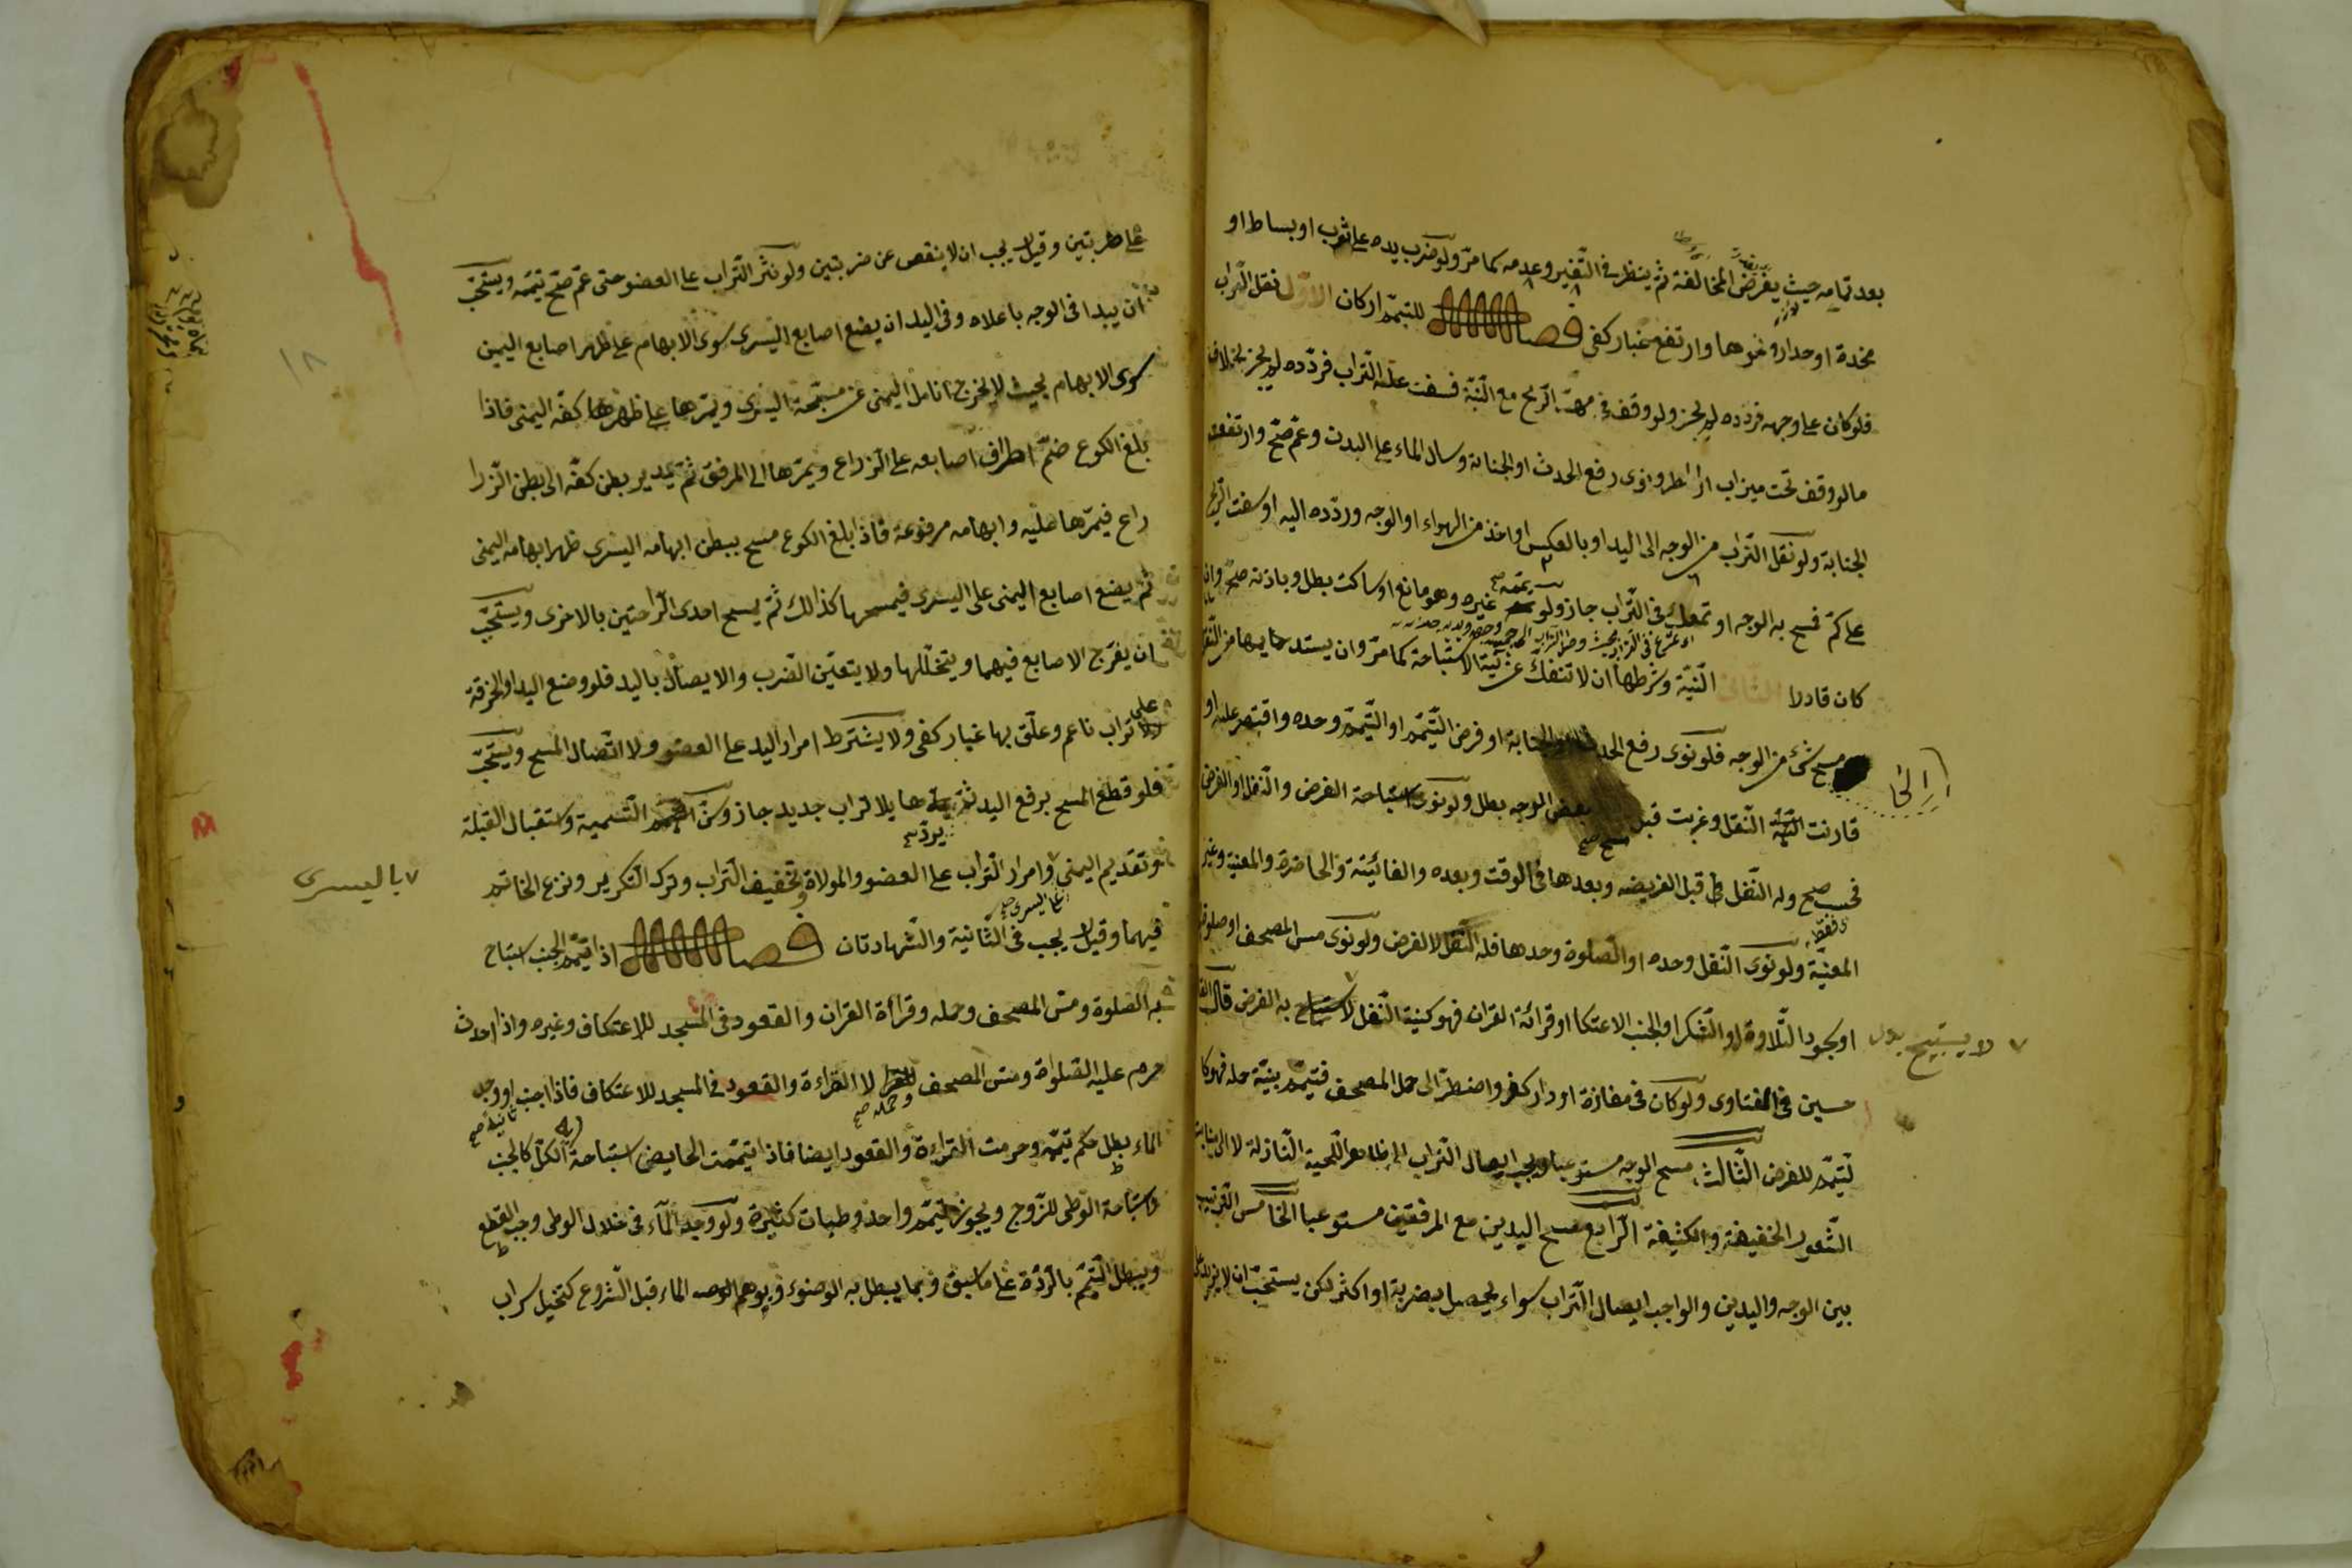 بعد تمامه حيث يفرض المخالفة ثم ينظر في التغير وعدمه كما مر ولو ضرب يده على ثوب او بساط او
مخدة او جدار ونحوها وارتفع غبار كفى فصل للتيمم اركان الاول نقل التراب
فلو كان على وجهه فردده لم يجز ولو وقف في مهب الريح مع النية فسفت عليه التراب فردده لم يجز بخلاف
ما لو وقف تحت ميزاب او مطر ونوى رفع الحدث او الجنابة وسال الماء على البدن وعم صح وارتفعت
الجنابة ولو نقل التراب من الوجه الى اليد او بالعكس او اخذ من الهواء او الوجه وردده اليه او سفت الريح
على كم فمسح به الوجه او تمعك في التراب جاز ولو يممه غيره وهو مانع او ساكت بطل وباذنه صح وان
كان قادرا الثاني النية وشرطها ان لا تنفك عن نية الاستباحة كما مر وان يستديمها من النقل
الى
مسح شئ من الوجه فلو نوى رفع الحدث او الجنابة او فرض التيمم او التيمم وحده واقتصر عليه او
قارنت النية النقل وعزبت قبل مسح بعض الوجه بطل ولو نوى استباحة الفرض والنفل او الفرض
فحسب صح وله النفل قبل الفريضه وبعدها في الوقت وبعده والفائتة والحاضرة والمعنية وغير
المعنية ولو نوى النفل وحده او الصلوة وحدها فله النفل لا الفرض ولو نوى مس المصحف او صلوة
او سجود التلاوة او الشكر او الجنب الاعتكاف او قرائة القران فهو كنية النفل لا يستباح به الفرض قال
لا يستبيح بدل
حسين في الفتاوى ولو كان في مفازة او دار كفر واضطر الى حمل المصحف فتيمم بنية حمله فهو كا
لتيمم للفرض الثالث مسح الوجه مستوعبا ويجب ايصال التراب الى ظاهر اللحية النازلة لا الى منابت
الشعور الخفيفة والكثيفة الرابع مسح اليدين مع المرفقين مستوعبا الخامس الترتيب
بين الوجه واليدين والواجب ايصال التراب سواء يحصل بضربة او اكثر لكن يستحب ان لا يزيد
على ضربتين وقيل يجب ان لا ينقص عن ضربتين ولو نثر التراب على العضو حتى عم صح تيممه ويستحب
ان يبدا في الوجه باعلاه وفي اليد ان يضع اصابع اليسرى سوى الابهام على ظهر اصابع اليمين
سوى الابهام بحيث لا يخرج انامل اليمنى عن مسبحة اليسرى ويمرها على ظهرها كفه اليمنى فاذا
بلغ الكوع ضم اطراف اصابعه على الذراع ويمرها الى المرفق ثم يدير بطن كفه الى بطن الذرا
راع فيمرها عليه وابهامه مرفوعة فاذا بلغ الكوع مسح ببطن ابهامه اليسرى ظهر ابهامه اليمنى
ثم يضع اصابع اليمنى على اليسرى فيمسحها كذالك ثم يمسح احدى الراحتين بالاخرى ويستحب
ان يفرج الاصابع فيهما ويتخللها ولا يتعين الضرب والايصال باليد فلو وضع اليد او الخرقة
على تراب ناعم وعلق بها غبار كفى ولا يشترط امرار اليد على العضو ولا اتصال المسح ويستحب
فلو قطع المسح برفع اليد ثم يردها بلا تراب جديد جاز وسن التسمية واستقبال القبلة
وتقديم اليمنى وامرار التراب على العضو والموالاة وتخفيف التراب وترك التكرير ونزع الخاتم
٧ باليسرى
فيهما وقيل يجب في الثانية والشهادتان فصل اذا تيمم الجنب استباح
به الصلوة ومس المصحف وحمله وقراءة القران والقعود في المسجد للاعتكاف وغيره واذا احدث
حرم عليه الصلواة ومس المصحف وحمله لا القراءة والقعود في المسجد للاعتكاف فاذا اجنب او وجد
الماء بطل حكم تيممه وحرمت القراءة والقعود ايضا فاذا تيممت الحايض استباحة الكل كالجنب
واستباحة الوطى للزوج ويجوز بتيمم واحد وطيات كثيرة ولو وجد الماء في خلال الوطى وجب القطع
ويبطل التيمم بالردة على ما سبق وبما يبطل به الوضوء وبوهم الماء قبل الشروع كتخيل سراب
١٨